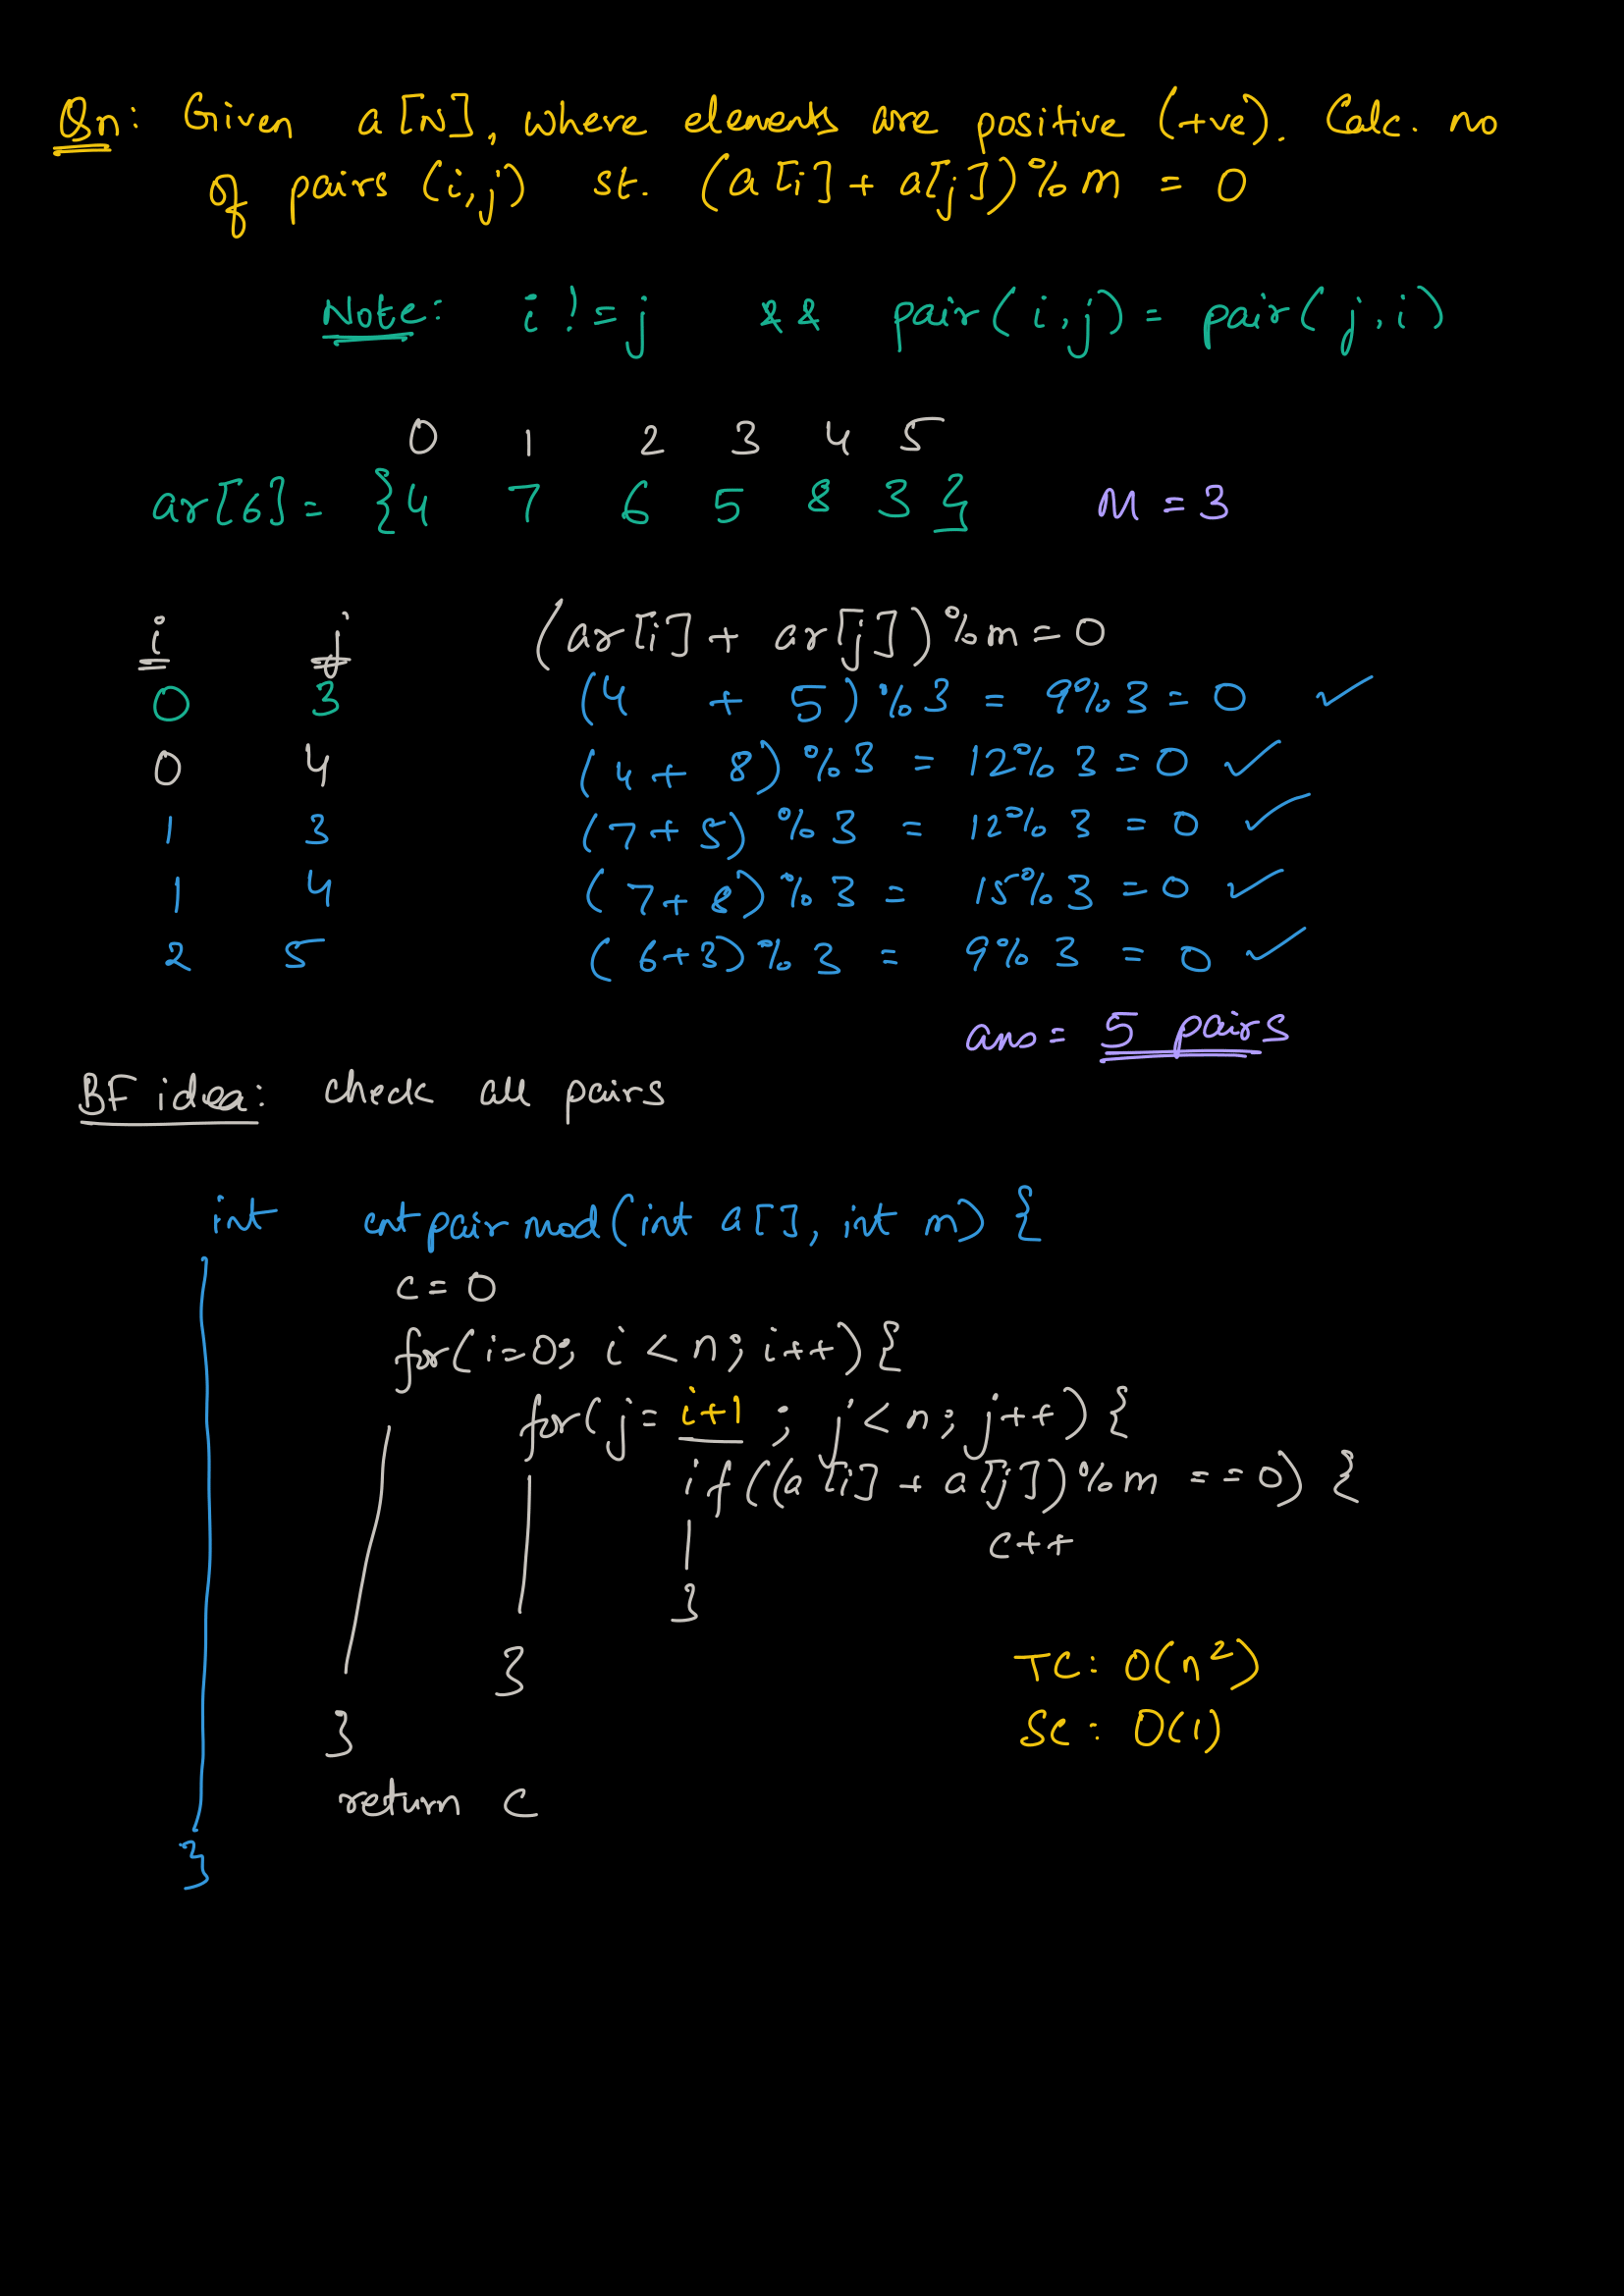 Qn: Given a[N], where elements are positive (+ve). Calc. no
of pairs (i,j) st. (a[i] + a[j])%m = 0
Note: i != j && pair(i,j) = pair(j,i)
0 1 2 3 4 5
ar[6] = {4 7 6 5 8 3} M = 3
i j (ar[i] + ar[j])%m = 0
0 3 (4 + 5)%3 = 9%3 = 0 ✓
0 4 (4 + 8)%3 = 12%3 = 0 ✓
1 3 (7 + 5)%3 = 12%3 = 0 ✓
1 4 (7 + 8)%3 = 15%3 = 0 ✓
2 5 (6+3)%3 = 9%3 = 0 ✓
ans = 5 pairs
BF idea: check all pairs
int cntpairmod(int a[], int m) {
c = 0
for(i=0; i < n; i++) {
for(j = i+1 ; j < n; j++) {
if((a[i] + a[j])%m == 0) {
c++
}
}
TC: O(n²)
}
SC: O(1)
return c
}